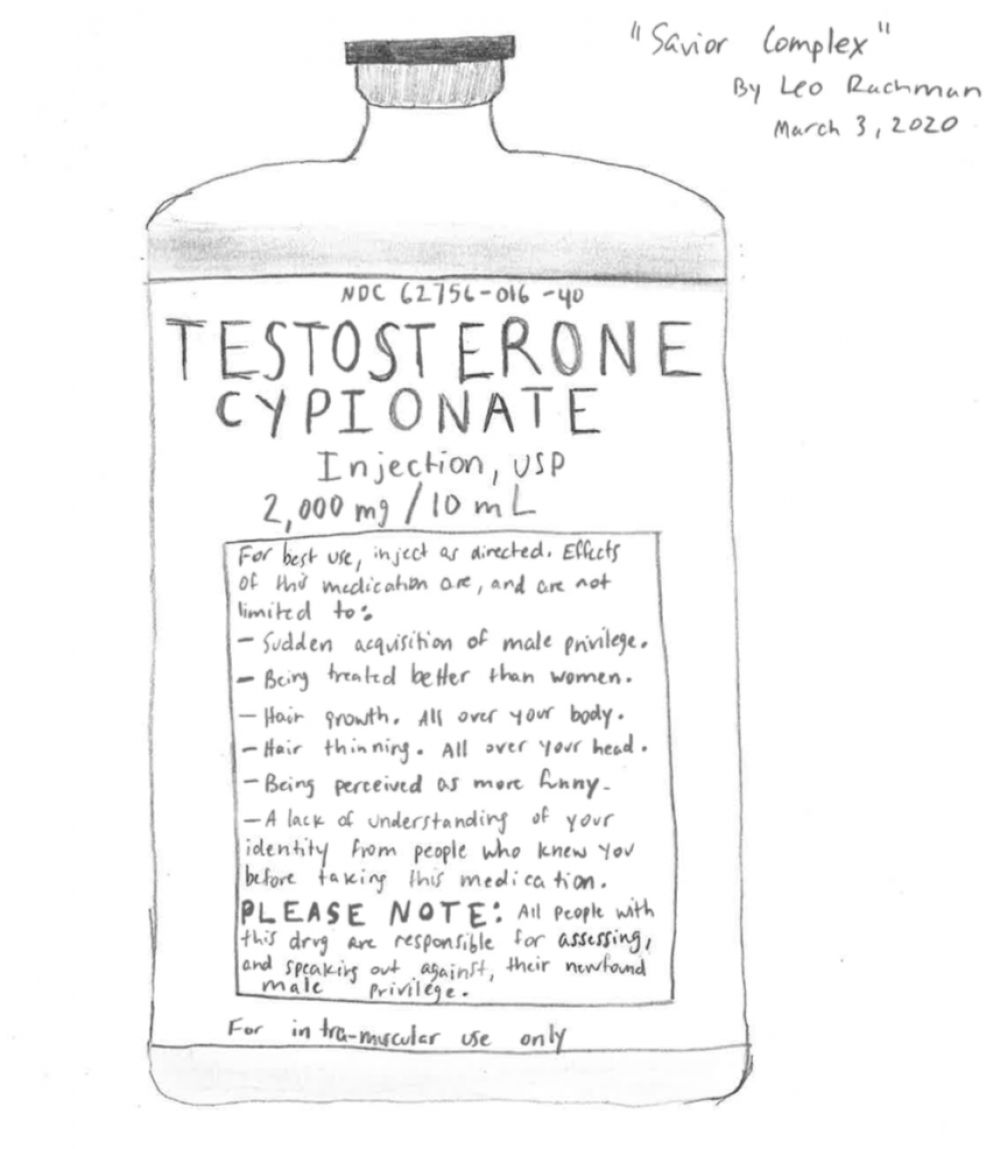 "Savior Complex"
By Leo Rachman
March 3, 2020
NDC 62756-016-40
TESTOSTERONE
CYPIONATE
Injection, USP
2,000 mg / 10 mL
For best use, inject as directed. Effects
of this medication are, and are not
limited to:
- Sudden acquisition of male privilege.
- Being treated better than women.
- Hair growth. All over your body.
- Hair thinning. All over your head.
- Being perceived as more funny.
- A lack of understanding of your
identity from people who knew you
before taking this medication.
PLEASE NOTE: All people with
this drug are responsible for assessing,
and speaking out against, their newfound
male privilege.
For intra-muscular use only